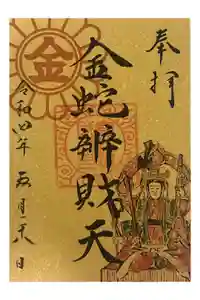 奉拝
金蛇辨財天
令和四年五月二十八日
金